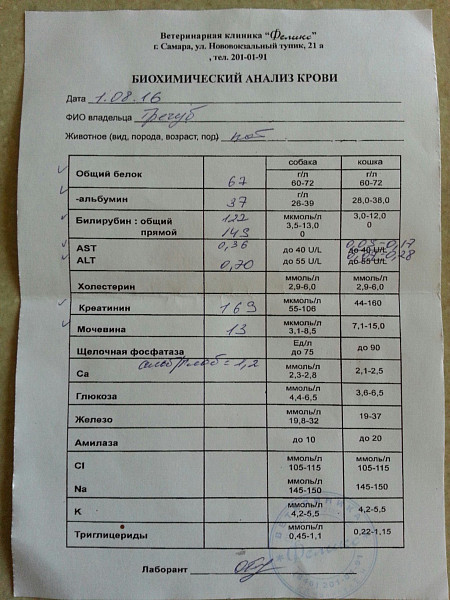 Ветеринарная клиника "Феликс"
г. Самара, ул. Нововокзальный тупик, 21 а
, тел. 201-01-91
БИОХИМИЧЕСКИЙ АНАЛИЗ КРОВИ
Дата 1.08.16
ФИО владельца
Животное (вид, порода, возраст, пол) кот
собака кошка
Общий белок 67 г/л 60-72 г/л 60-72
-альбумин 37 г/л 26-39 28,0-38,0
Билирубин : общий 122 мкмоль/л 3,5-13,0 3,0-12,0
прямой 143 0 0
AST 0,36 до 40 U/L до 40 U/L 0,03-0,17
ALT 0,70 до 55 U/L до 55 U/L
Холестерин ммоль/л 2,9-6,0 ммоль/л 2,9-6,0
Креатинин 169 мкмоль/л 55-106 44-160
Мочевина 13 мкмоль/л 3,1-8,5 7,1-15,0
Щелочная фосфатаза Ед/л до 75 до 90
альб/глоб = 1,2
Ca ммоль/л 2,3-2,8 2,1-2,5
Глюкоза ммоль/л 4,4-6,5 3,6-6,5
Железо ммоль/л 19,8-32 19-37
Амилаза до 10 до 20
Cl ммоль/л 105-115 ммоль/л 105-115
Na ммоль/л 145-150 145-150
K ммоль/л 4,2-5,5 4,2-5,5
Триглицериды ммоль/л 0,45-1,1 0,22-1,15
Лаборант